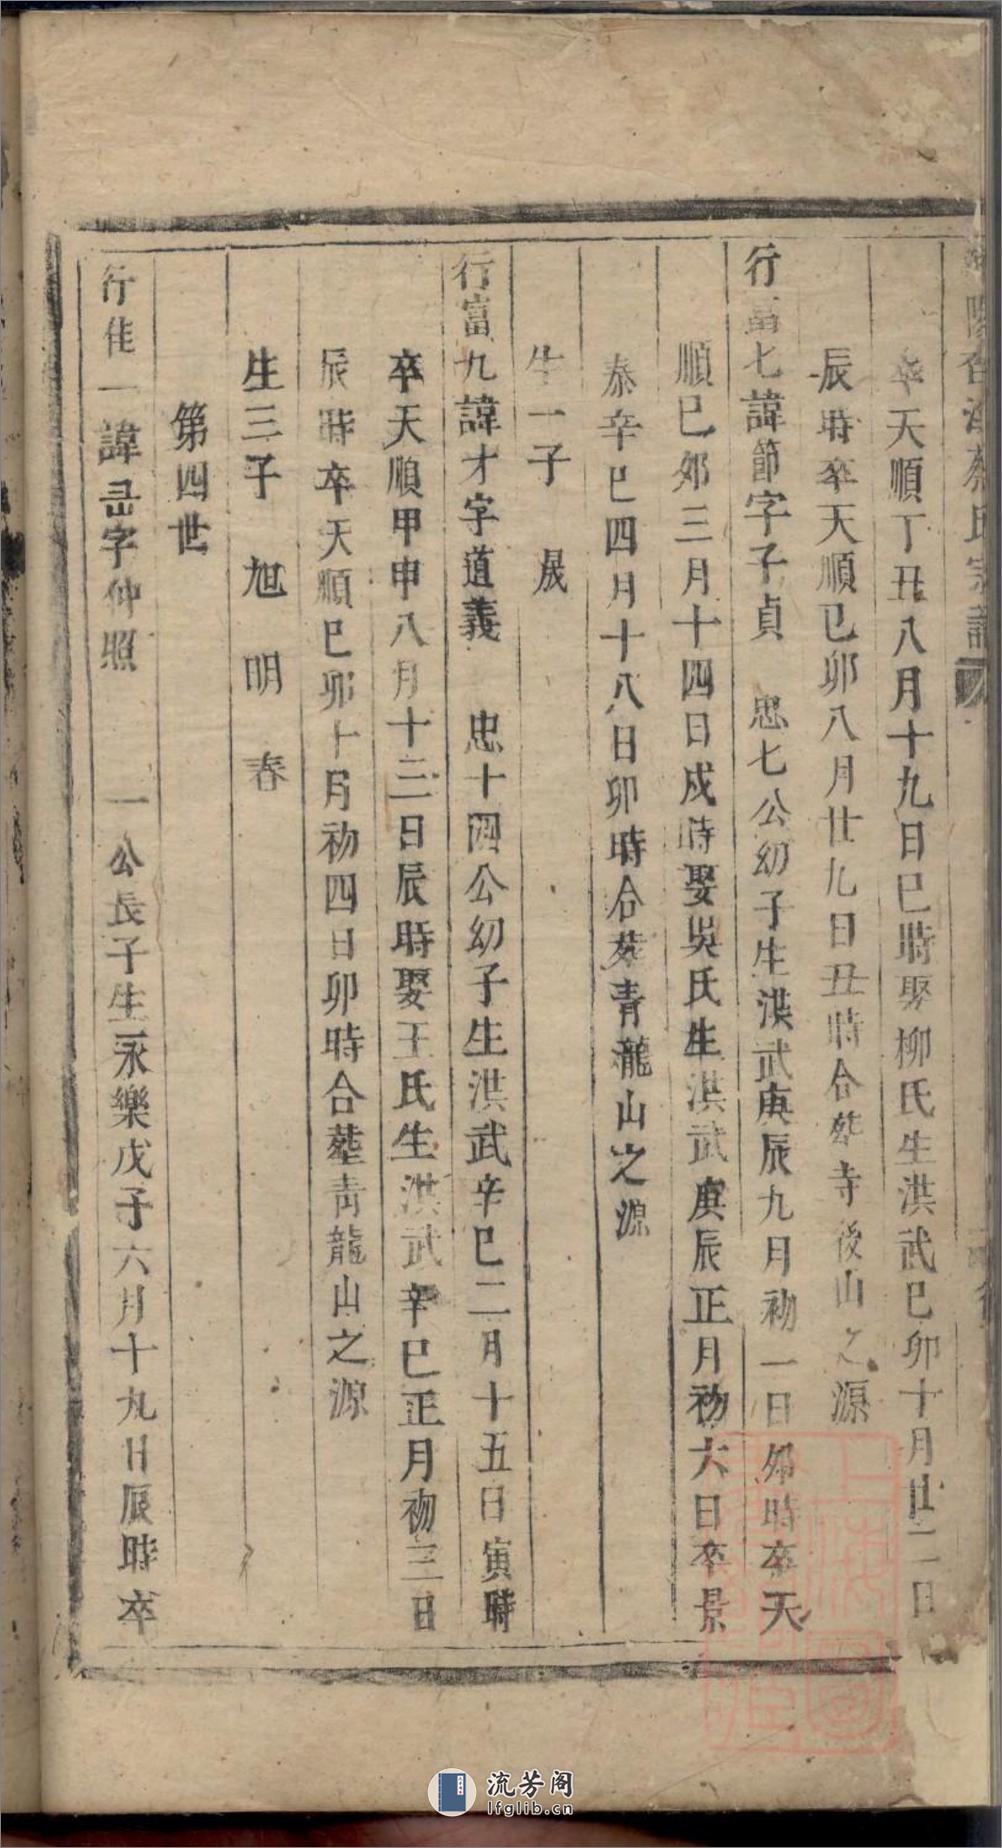 氏宗譜
卒天順丁丑八月十九日巳時娶柳氏生洪武己卯十月廿二日
辰時卒天順己卯八月廿九日丑時合葬寺後山之源
行富七諱節字子貞　忠七公幼子生洪武庚辰九月初一日卯時卒天
順己卯三月十四日戌時娶吳氏生洪武庚辰正月初六日卒景
泰辛巳四月十八日卯時合葬青龍山之源
生一子　晟
行富九諱才字道義　忠十四公幼子生洪武辛巳二月十五日寅時
卒天順甲申八月十二日辰時娶王氏生洪武辛巳正月初三日
辰時卒天順己卯十月初四日卯時合塟青龍山之源
生三子　旭　明　春
第四世
行隹一諱字仲照　一公長子生永樂戊子六月十九日辰時卒
流芳阁
lfglib.cn